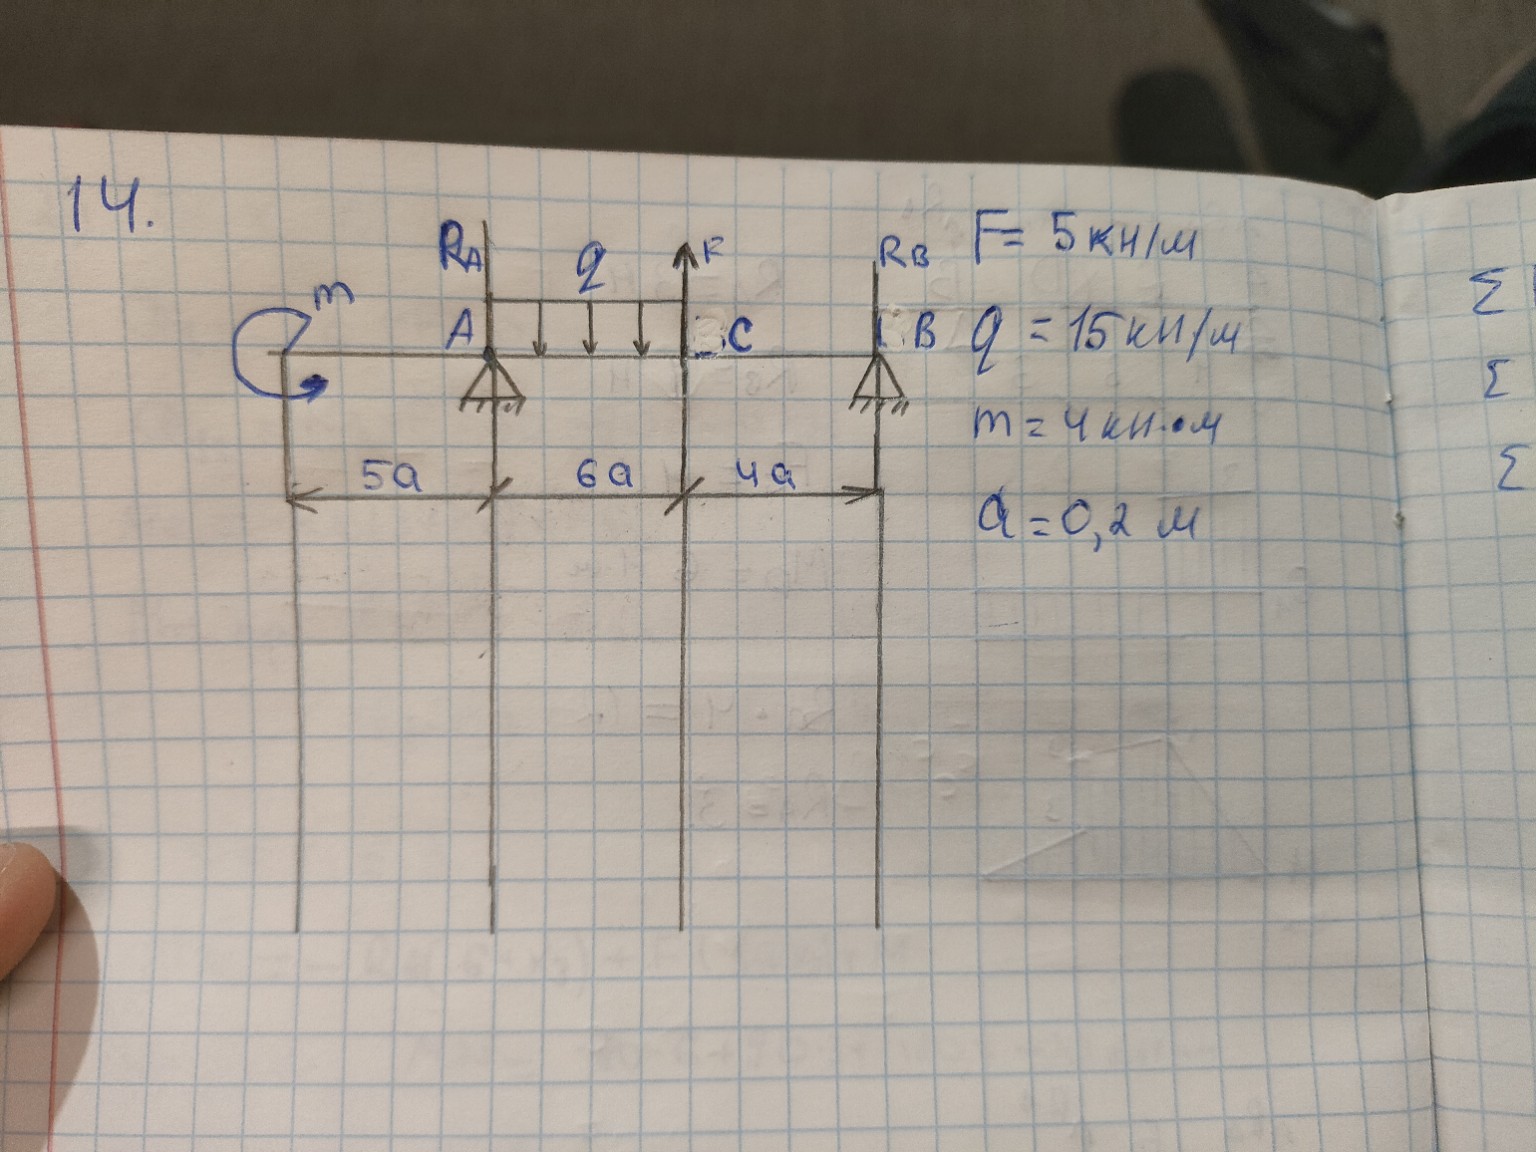 14.
RA q F RB F= 5 кН/м
m
A C B q = 15 кН/м
m = 4 кН·м
5a 6a 4a
a = 0,2 м
Σ
Σ
Σ